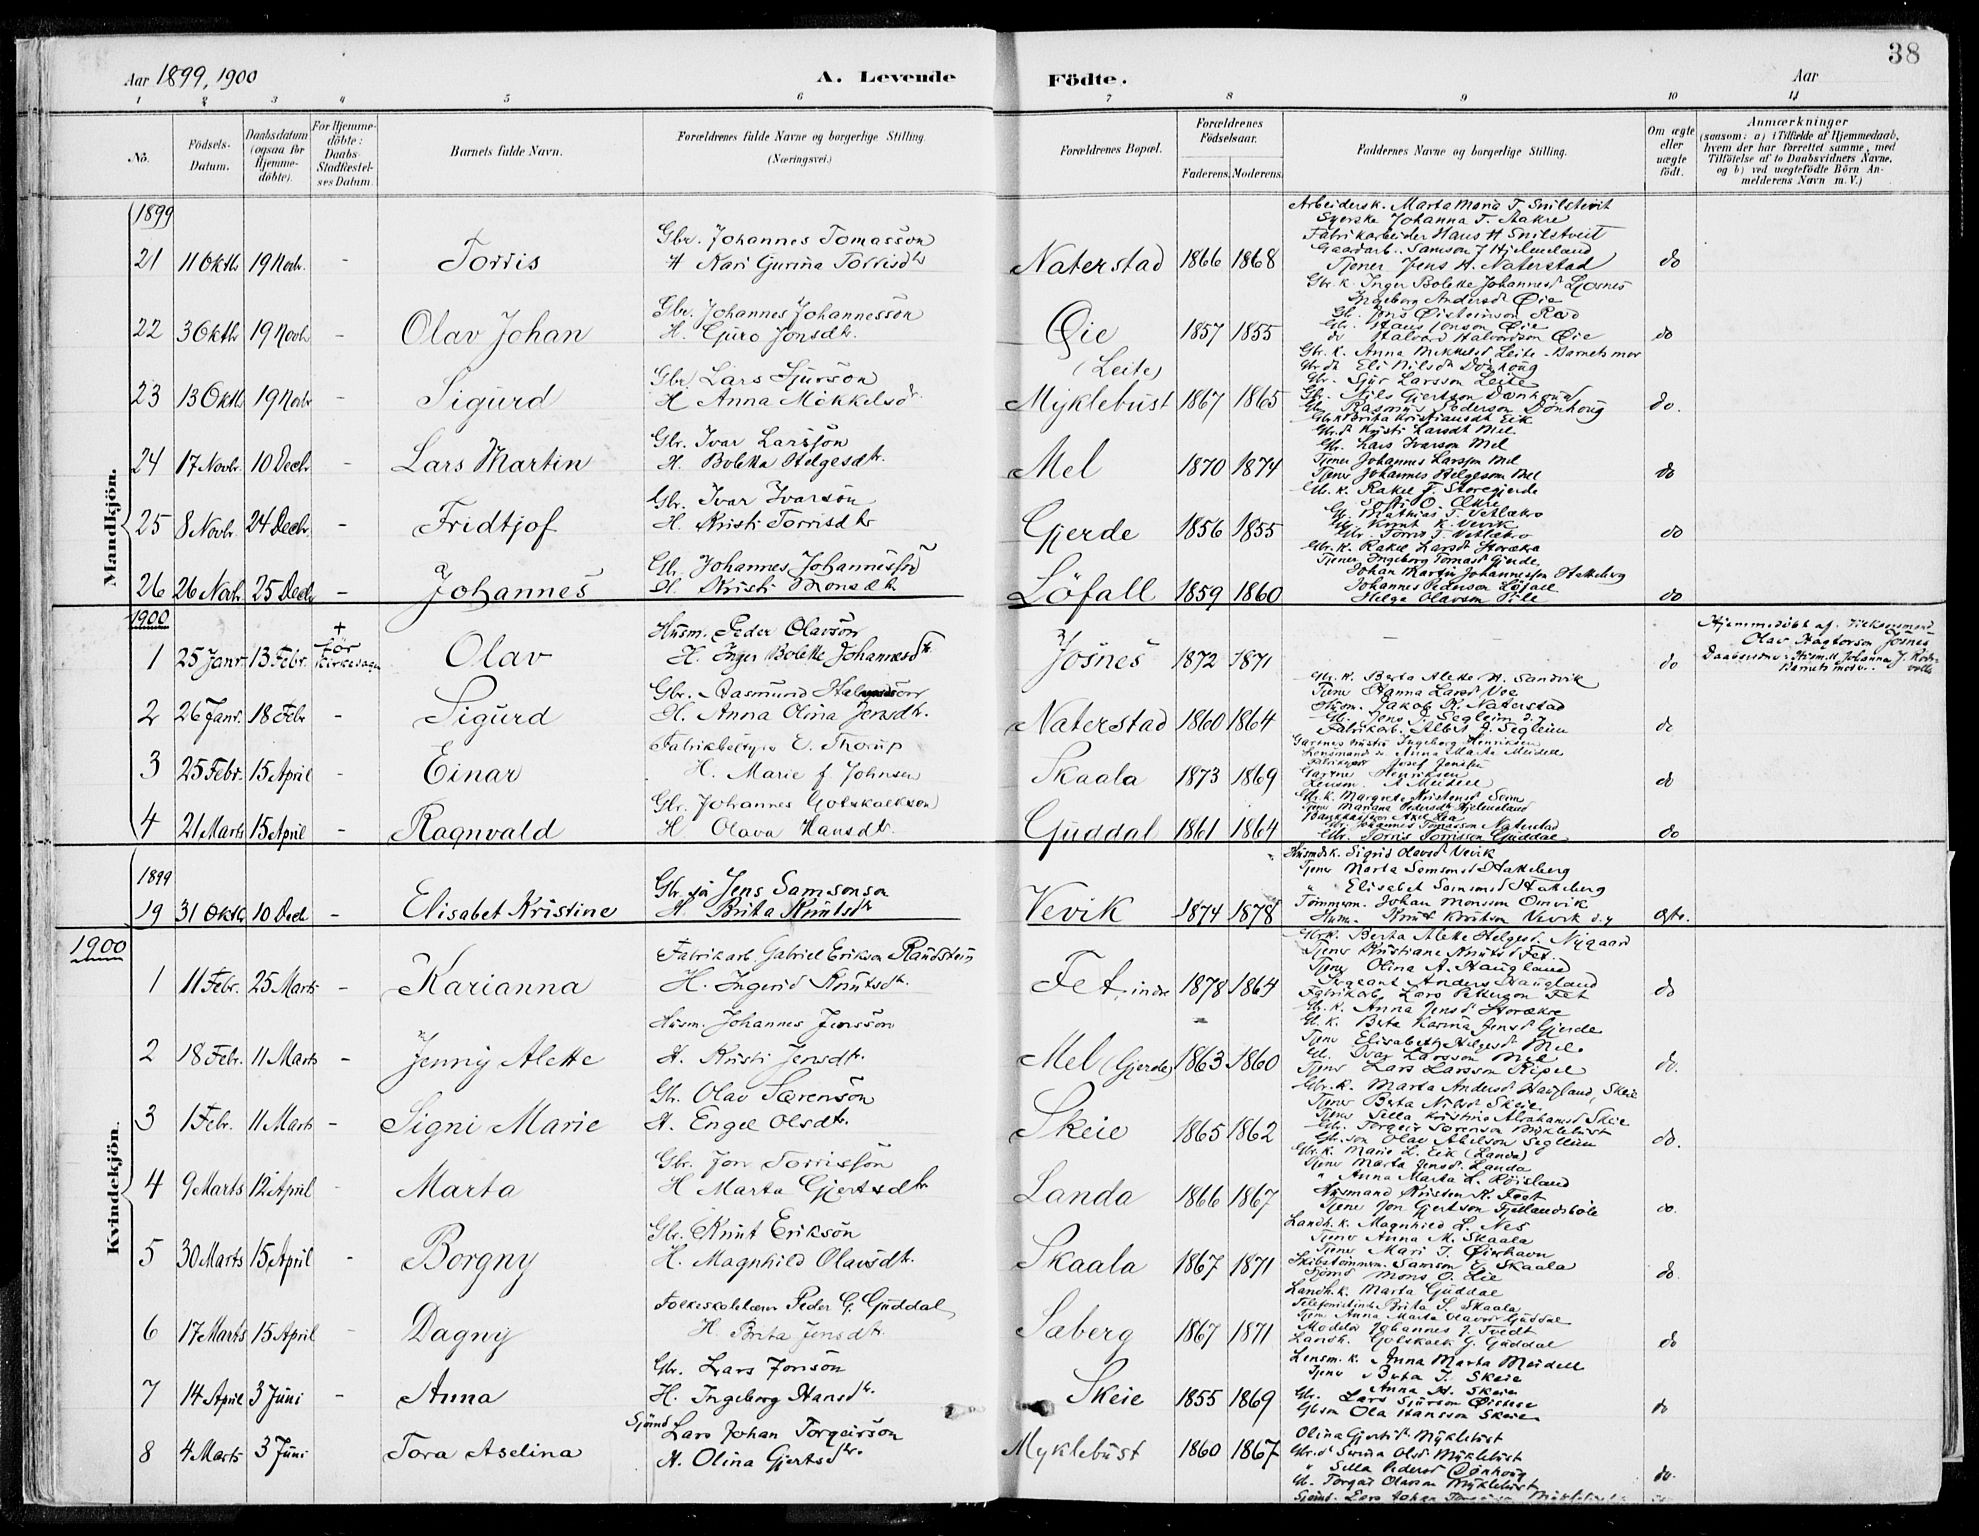 38
Aar 1899, 1900
A. Levende Födte.
Aar
1 2 3 4 5 6 7 8 9 10 11
No.
Födsels-Datum.
Daabsdatum (ogsaa for Hjemmedöbte).
For Hjemmedöbte: Daabs-Stadfæstelses Datum.
Barnets fulde Navn.
Forældrenes fulde Navne og borgerlige Stilling. (Næringsvei.)
Forældrenes Bopæl.
Forældrenes Födselsaar.
Faderens. Moderens.
Faddernes Navne og borgerlige Stilling.
Om ægte eller uægte födt.
Anmærkninger
(saasom: a) i Tilfælde af Hjemmedaab, hvem der har forrettet samme, med Tilföielse af to Daabsvidners Navne, og b) ved uægtefödte Börn Anmelderens Navn m. V.)
Mandkjön.
1899
21 11 Oktb 19 Novb. - Torris
Gbr. Johannes Tomasson
H Kari Gurina Torrisdtr
Naterstad 1866 1868 do
Arbeidersk. Marta Maria T. Snilstveit
Syerske Johanna T. Aakre
Fabrikarbeider Hans H Snilstveit
Gaardarb. Samson J Hjelmeland
Tjener Jens H. Naterstad
22 3 Oktb 19 Novb - Olav Johan
Gbr. Johannes Johannesson
H. Guro Jonsdtr.
Øie 1857 1855 do
Gbr. k. Inger Bolette Johannesd Ljosnes
Ingeborg Andersd Øie
Gbr. Hans Jonson Øie
do Halvord Halvordson Øie
23 13 Oktb 19 Novb - Sigurd
Gbr. Lars Sjurson
H Anna Mikkelsd
(Leite)
Myklebust 1867 1865 do.
Gbr. k. Anna Mikkelsd Leite - Barnets mor
Gbr. d. Eli Nilsd Dönhoug
Gbr. Sjur Larsson Leite
Gbr. Nils Gjertson Dönhoug
Gbr. Rasmus Pederson Dönhoug
24 17 Novbr. 10 Decb - Lars Martin
Gbr. Ivar Larsson
H. Boletta Helgesdtr.
Mel 1870 1874 do
Gbr. d. Kristi Larsdt Mel
Gbr. Lars Ivarson Mel
Tjener Johannes Larsson Mel
Tjener Johannes Helgeson Mel
25 8 Novbr. 24 Decbr. - Fridtjof
Gbr. Ivar Ivarson
H. Kristi Torrisdtr
Gjerde 1856 1855 do
Gbr. k. Rakel F. Storegjerde
Gbr. Mathias T. Vetlækre
Gbr. Knut K. Vevik
Gbr. Torris T. Vetlækre
26 26 Novb. 25 Decb - Johannes
Gbr. Johannes Johannesson
H. Kristi Monsdtr
Löfall 1859 1860 do
Gbr. k. Rakel Larsd Storækre
Tjener Ingeborg Tomasd Gjerde
Johan Martin Johannesson Hatteberg
Johannes Pederson Löfall
Helge Olavson
1900
1 25 Janr. 13 Febr. + för Kirkedagen Olav
Husm. Peder Olavson
H. Inger Bolette Johannesdtr.
Josnes 1872 1871 do
Olav Josnes
2 26 Janr. 18 Febr - Sigurd
Gbr. Aasmund
H. Anna Olina Jensdtr.
Naterstad 1860 1864 do
Gbr. k. Berta Alette H. Sandvik
Tjener Hanna Larsd Voe
Husm. Jakob K. Naterstad
Gbr. Jens J. Segleim
Fabrikarb. J. Segleim
3 25 Febr. 15 April - Einar
Fabrikbestyrer E. Thorup
H. Marie f. Johnsen
Skaala 1873 1869 do
Ingeborg Henriksen
Anna Marta Meidell
Henriksen
A Meidell
4 21 Marts 15 April - Ragnvald
Gbr. Johannes Gotskalkson
H Olava Hansdtr.
Guddal 1861 1864 do
Gbr. k. Margrete Kristensd Seim
Tjener Mariana Pedersdtr Hjelmeland
Gbr. Johannes Tomasson Naterstad
Gbr. Torris Torrisson Guddal
Kvindekjön.
1899
19 31 Oktb 10 Decb - Elisabet Kristine
Gbr. sön Jens Samsonson
H. Brita Knutsdtr
Vevik 1874 1878 ægte.
Husmdsk. Sigrid Olavsd Vevik
Tjener Marta Samsonsd Hatteberg
" Elisabet Samsonsd Hatteberg
Tömmerm. Johan Monson Omvik
Husm. Knut Knutson Vevik d.y
1900
1 11 Febr. 25 Marts - Karianna
Fabrikarb. Gabriel Erikson Randstein
H. Ingerid Knutsdtr.
Fet, indre 1878 1864 do
Gbr. k. Berta Alette Helgesd. Nygaard
Tjener Kristiane Knutsd Fet
Tjener Olina A. Haugland
Sergeant Anders Haugland
Fabrikarb. Lars Petterson Fet
2 18 Febr. 11 Marts - Jenny Alette
Husm. Johannes Jensson
H. Kristi Jensdtr.
Mel (Gjerde) 1863 1860 do.
Gbr. k. Anna Jensd Storækre
Gbr. k. Berta Karina Jensd Gjerde
Tjener Elisabeth Helgesd Mel
Gbr. Ivar Larsson Mel
Tjener Lars Larsson Ripel
3 1 Febr. 11 Marts - Signi Marie
Gbr. Olav Sørenson
H. Engel Olsdtr.
Skeie 1865 1862 do.
Gbr. k. Marta Andersd Haugland, Skeie
Tjener Berta Nilsd Skeie
Tjener Sella Kristine Abrahamsd Skeie
Gbr. Torgeir Sørenson Myklebust
Gbr. sön Olav Abelson Segleim
4 9 Marts 12 April - Marta
Gbr. Jon Torrisson
H Marta Gjertsdtr
Landa 1866 1867 do.
Gbr. k. Marie L. Eik (Landa)
Tjener Marta Jensd. Landa
" Anna Marta L. Röisland
Husmand Kristen K. Feet
Tjener Jon Gjertson Fjellandsböle
5 30 Marts 15 April - Borgny
Gbr. Knut Erikson
H. Magnhild Olavsdtr.
Skaala 1867 1871 do.
Landh. k. Magnhild L. Nes
Tjener Anna M. Skaala
Tjener Mari T. Øierhavn
Skibstömmerm. Samson E. Skaala
Mons O. Lie
6 17 Marts 15 April - Dagny
Folkeskolelærer Peder G. Guddal
H. Brita Jensdtr.
Sæberg 1867 1871 do
Landh. k. Marta Guddal
Telefonistinde Brita S. Skaala
Tjener Anna Marta Olavsd Guddal
Johannes J. Tvedt
Landh. Gotskalk G. Guddal
7 14 April 3 Juni - Anna
Gbr. Lars Jonson
H. Ingeborg Hansdtr.
Skeie 1855 1869 do
Lensm. k. Anna Marta Meidell
Tjener Berta T. Skeie
Anna H. Skeie
Gbr. Lars Sjurson Øistese
Gbsön Ola Hansson Skeie
8 4 Marts 3 Juni Tora Aselina
Sjömd Lars Johan Torgeirson
H. Olina Gjertsdtr.
Myklebust 1860 1867 do.
Olina Gjertsd Myklebust
Gbr. d. Olsd Myklebust
" Sella Pedersd Dönhoug
Gbr. Torgeir Olavson Myklebust
Sjömd. Lars Johan